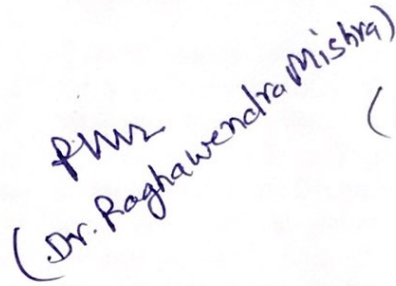 (Dr. Raghawendra Mishra)
(